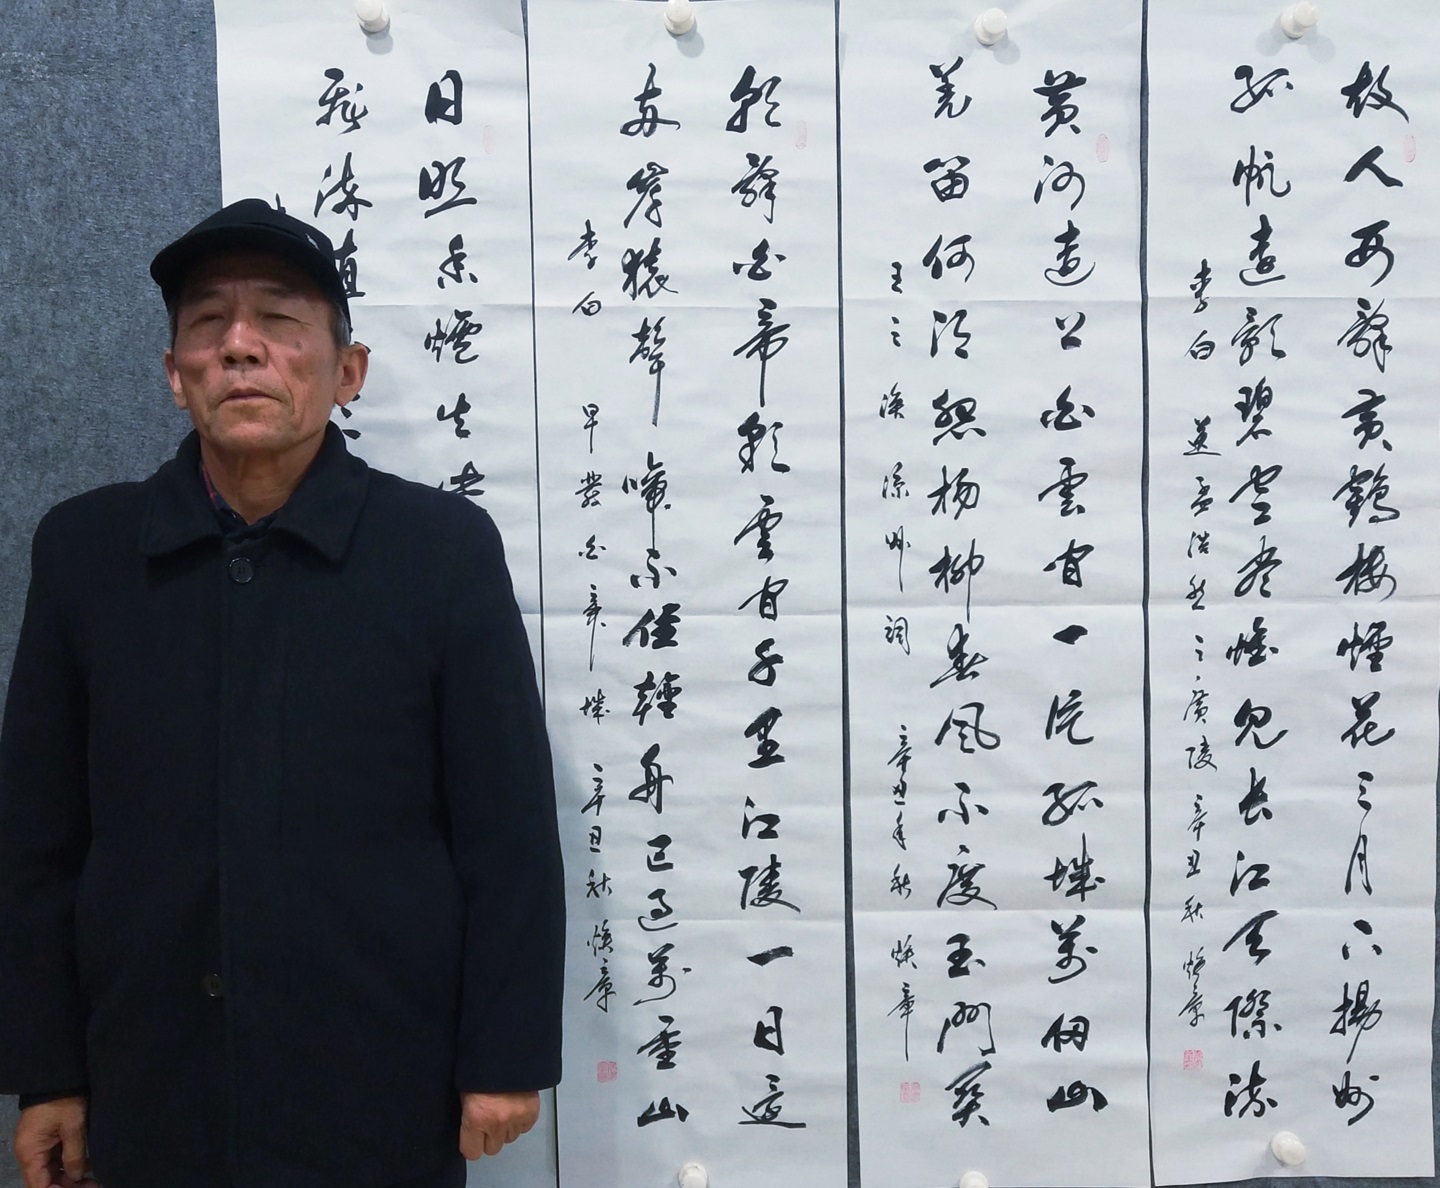 故人西辞黄鹤楼烟花三月下扬州
孤帆远影碧空尽惟见长江天际流
李白 送孟浩然之广陵 辛丑秋 焕章
黄河远上白云间一片孤城万仞山
羌笛何须怨杨柳春风不度玉门关
王之涣 凉州词 辛丑年秋 焕章
朝辞白帝彩云间千里江陵一日还
两岸猿声啼不住轻舟已过万重山
李白 早发白帝城 辛丑秋 焕章
日照香炉生
飞流直